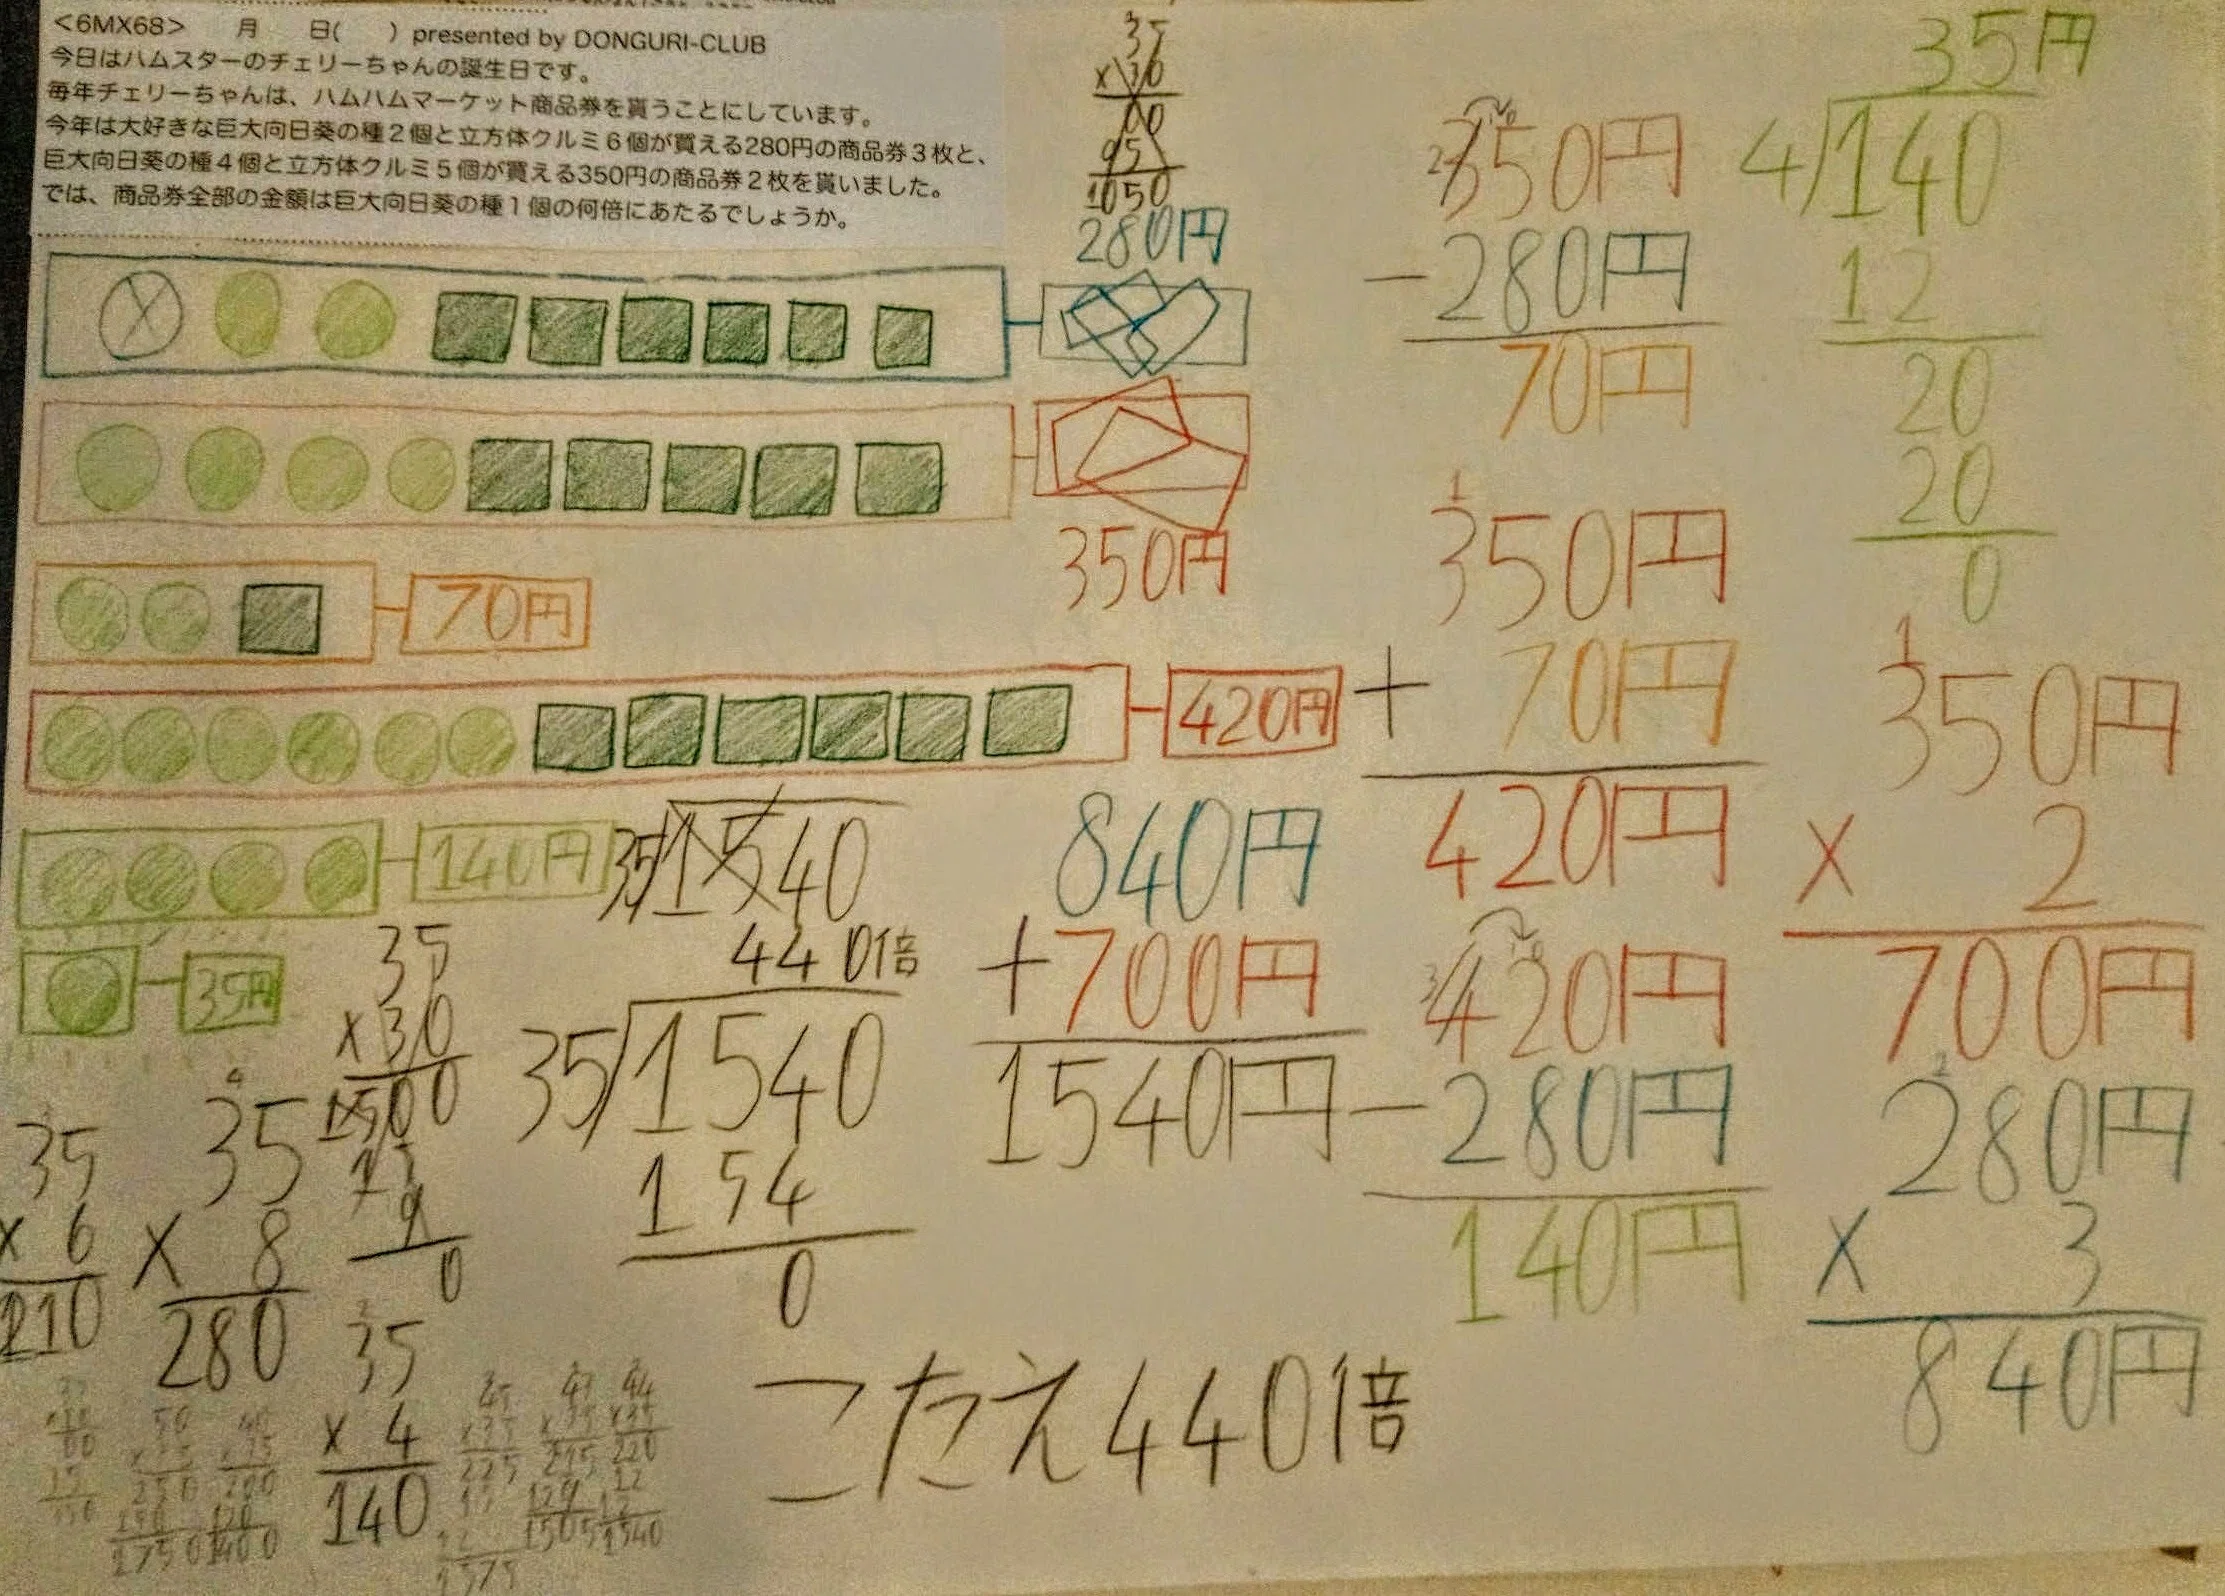 <6MX68> 月 日( ) presented by DONGURI-CLUB
今日はハムスターのチェリーちゃんの誕生日です。
毎年チェリーちゃんは、ハムハムマーケット商品券を貰うことにしています。
今年は大好きな巨大向日葵の種2個と立方体クルミ6個が買える280円の商品券3枚と、
巨大向日葵の種4個と立方体クルミ5個が買える350円の商品券2枚を貰いました。
では、商品券全部の金額は巨大向日葵の種1個の何倍にあたるでしょうか。
35
1050
280円
350円
70円
420円
140円
35円
350円
-280円
70円
350円
+ 70円
420円
420円
-280円
140円
35円
4)140
12
20
20
0
350円
× 2
700円
280円
× 3
840円
840円
+700円
1540円
35)1540
440倍
35)1540
154
0
35
×30
35
× 6
210
35
× 8
280
35
× 4
140
44
×35
220
1540
こたえ440倍